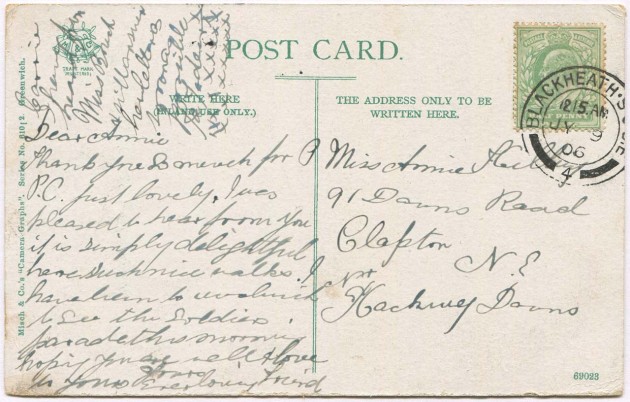 POST CARD.
WRITE HERE
(INLAND USE ONLY.)
THE ADDRESS ONLY TO BE
WRITTEN HERE.
TRADE MARK
Misch & Co.'s "Camera Graphs". Series No. 610/2. Greenwich.
BLACKHEATH · S.O. S.E
12.15 AM
JY 9
06
4
Dear Annie
Thank you so much for P
P.C. just lovely. I was
pleased to hear from you
it is simply delightful
here such nice walks. I
have been to woolwich
to see the Soldiers
parade this morning
hoping you are well & love
to yours
Ever loving friend
Miss Annie
91 Downs Road
Clapton
N.E
nr
Hackney Downs
69023